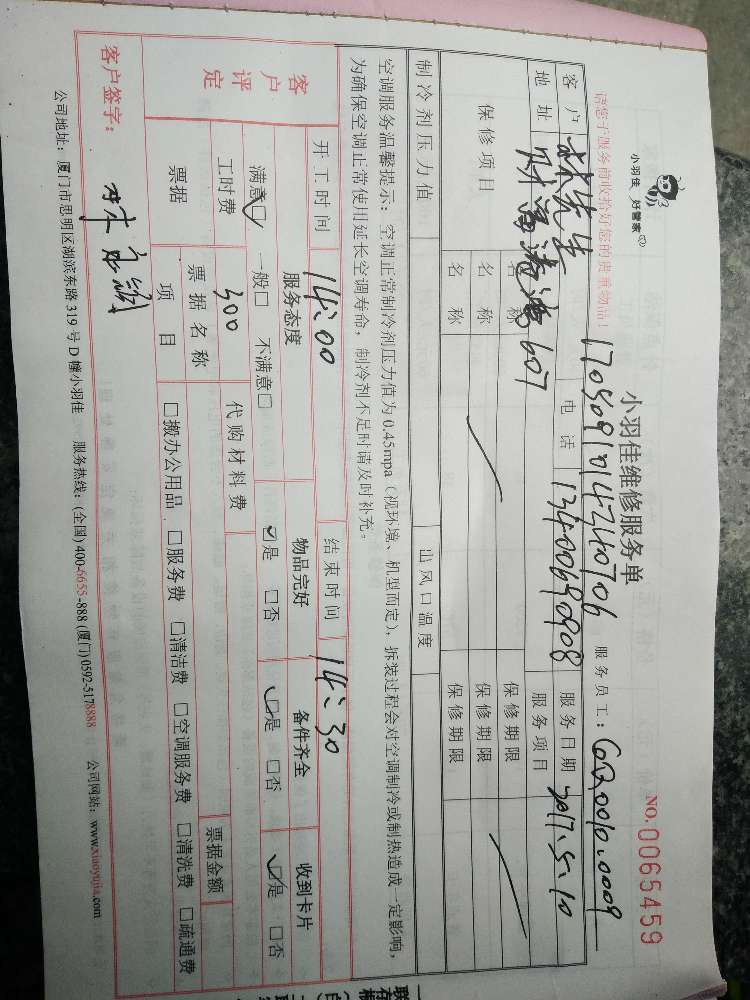 小羽佳 好管家
小羽佳维修服务单
NO.0065459
请您于服务前收拾好您的贵重物品！
服务员工：
客户 林先生 电话 13400690908 服务日期 2017.5.10
地址 607 服务项目
保修项目 名称 保修期限
名称 保修期限
名称 保修期限
制冷剂压力值 出风口温度
空调服务温馨提示：空调正常制冷剂压力值为0.45mpa（视环境、机型而定），拆装过程会对空调制冷或制热造成一定影响，
为确保空调正常使用延长空调寿命，制冷剂不足时请及时补充。
开工时间 14:00 结束时间 14:30
客户评定
服务态度 物品完好 备件齐全 收到卡片
满意☑ 一般□ 不满意□ ☑是 □否 ☑是 □否 ☑是 □否
工时费 300 代购材料费
票据 票据名称 票据金额
项目 □搬办公用品 □服务费 □清洁费 □空调服务费 □清洗费 □疏通费
客户签字：
公司地址：厦门市思明区湖滨东路319号D幢小羽佳 服务热线：(全国)400-6655-888 (厦门)0592-5178888 公司网站：www.xiaoyujia.com